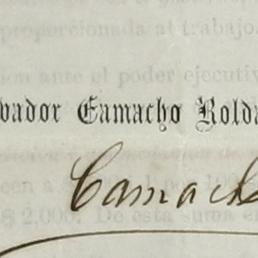 proporcionada al trabajo
ion ante el poder ejecutiv
vador Camacho Rolda
Camach
$ 2,000. De esta suma el